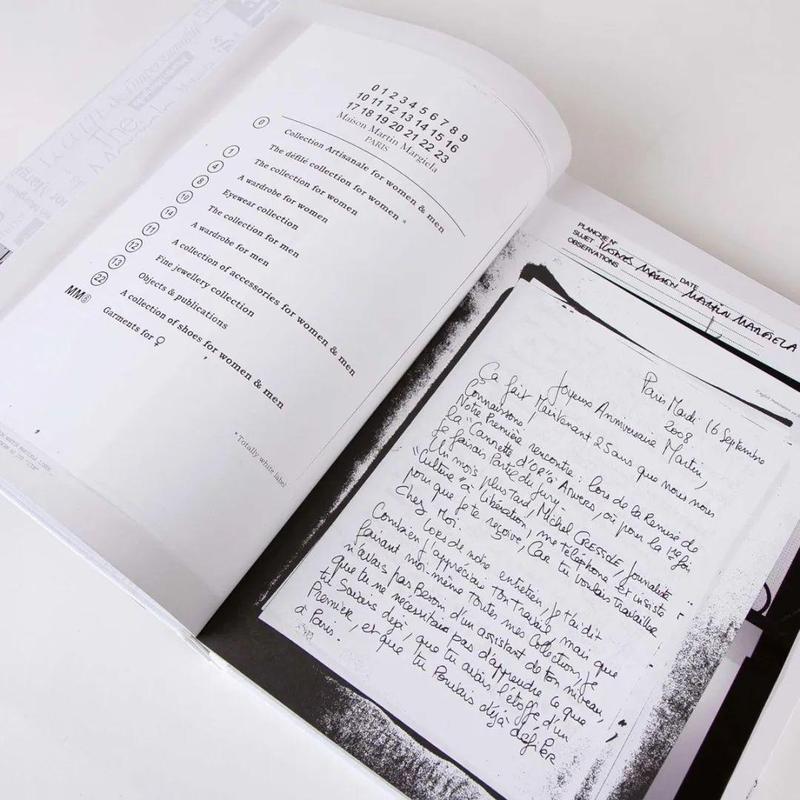 0 1 2 3 4 5 6 7 8 9
10 11 12 13 14 15 16
17 18 19 20 21 22 23
Maison Martin Margiela
PARIS
0 Collection Artisanale for women & men
The défilé collection for women *
1 The collection for women
4 A wardrobe for women
8 Eyewear collection
10 The collection for men
14 A wardrobe for men
11 A collection of accessories for women & men
12 Fine jewellery collection
13 Objects & publications
22 A collection of shoes for women & men
MM6 Garments for ♀
* Totally white label
PLANCHE N° DATE
SUJET MAISON MARTIN MARGIELA
OBSERVATIONS
Paris Mardi 16 Septembre
2008
Joyeux Anniversaire Martin,
Ça fait Maintenant 25 ans que nous nous
Connaissons.
Notre Première rencontre : lors de la Remise de
la "Cannette d'or" à Anvers, où pour la 1ère fois
je faisais Partie du jury.
Un mois plus tard, Michel CRESSOLE, journaliste
"Culture" à Libération, me téléphone et insiste
pour que je te reçoive, Car tu voulais travailler
Chez Moi.
Lors de notre entretien, je t'ai dit
Combien j'appréciais ton Travail, mais que
faisant moi-même toutes mes Collections, je
n'avais pas Besoin d'un assistant de ton niveau,
que tu ne nécessitais pas d'apprendre ce que
tu Savais déjà, que tu avais l'étoffe d'un
Première, et que tu Pouvais déjà défiler
à Paris.